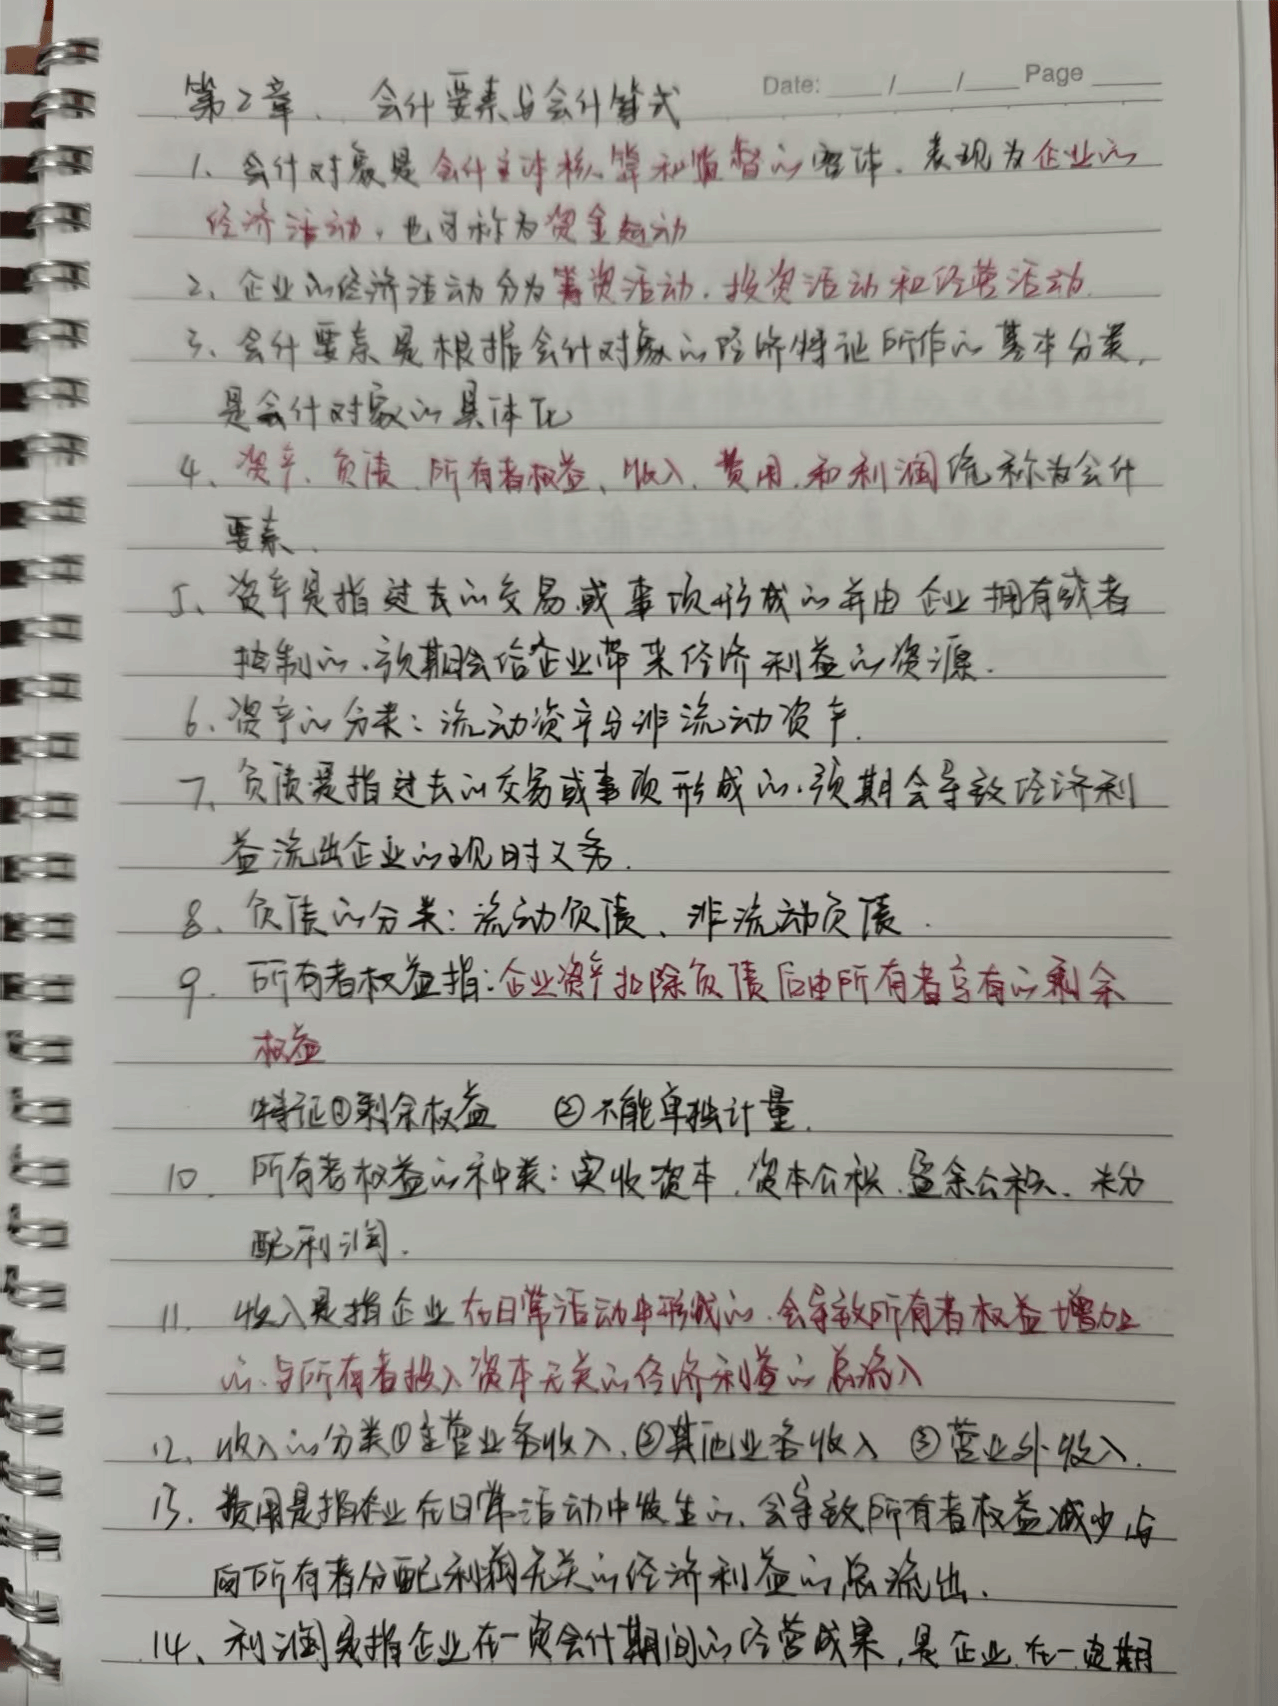 Date: ___/___/___ Page ____
第2章、 会计要素与会计等式
1、会计对象是会计主体核算和监督的客体、表现为企业的
经济活动，也可称为资金运动
2、企业的经济活动分为筹资活动、投资活动和经营活动
3、会计要素是根据会计对象的经济特征所作的基本分类，
是会计对象的具体化
4、资产、负债、所有者权益、收入、费用、和利润统称为会计
要素、
5、资产是指过去的交易或事项形成的并由企业拥有或者
控制的、预期会给企业带来经济利益的资源.
6、资产的分类：流动资产与非流动资产.
7、负债是指过去的交易或事项形成的、预期会导致经济利
益流出企业的现时义务.
8、负债的分类：流动负债、非流动负债.
9. 所有者权益指：企业资产扣除负债后由所有者享有的剩余
权益
特征①剩余权益 ②不能单独计量.
10. 所有者权益的种类：实收资本、资本公积、盈余公积、未分
配利润.
11. 收入是指企业在日常活动中形成的、会导致所有者权益增加
的、与所有者投入资本无关的经济利益的总流入
12、收入的分类①主营业务收入、②其他业务收入 ③营业外收入.
13、费用是指企业在日常活动中发生的、会导致所有者权益减少、与
向所有者分配利润无关的经济利益的总流出、
14、利润是指企业在一定会计期间的经营成果，是企业在一定期